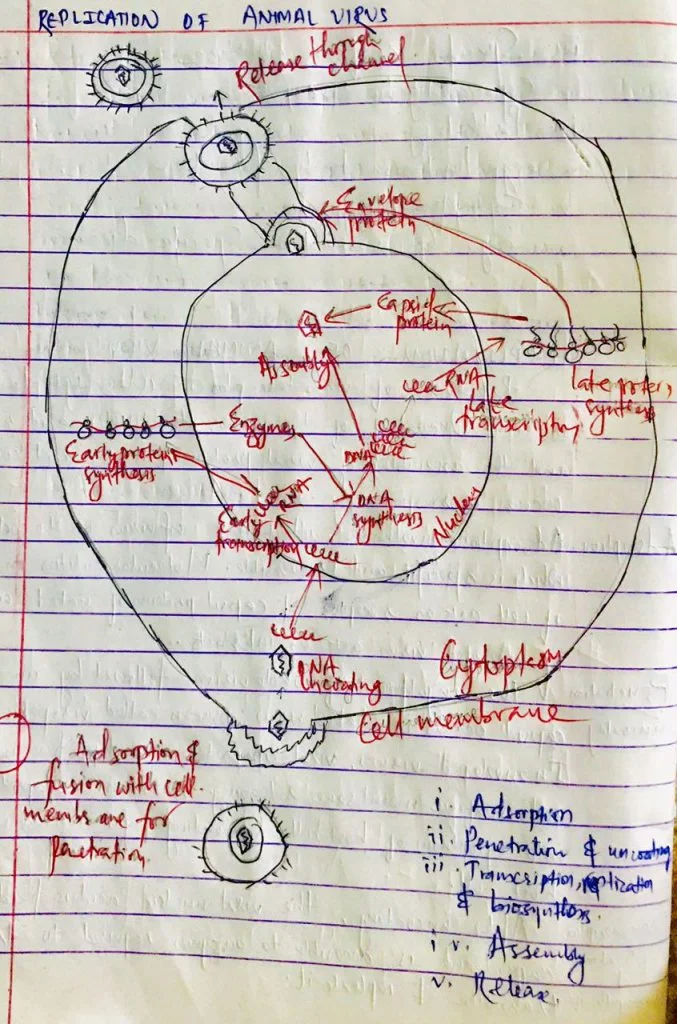 REPLICATION OF ANIMAL VIRUS
Release through
channel
Envelope
protein
Capsid
protein
Assembly
RNA
Late
transcription
late protein
synthesis
Enzymes
Early protein
synthesis
DNA
RNA
DNA
synthesis
Early
transcription
Nucleus
DNA
Uncoating
Cytoplasm
Cell membrane
Adsorption &
fusion with cell
membrane for
penetration.
i. Adsorption
ii. Penetration & uncoating
iii. Transcription, replication
& biosynthesis.
iv. Assembly
v. Release.